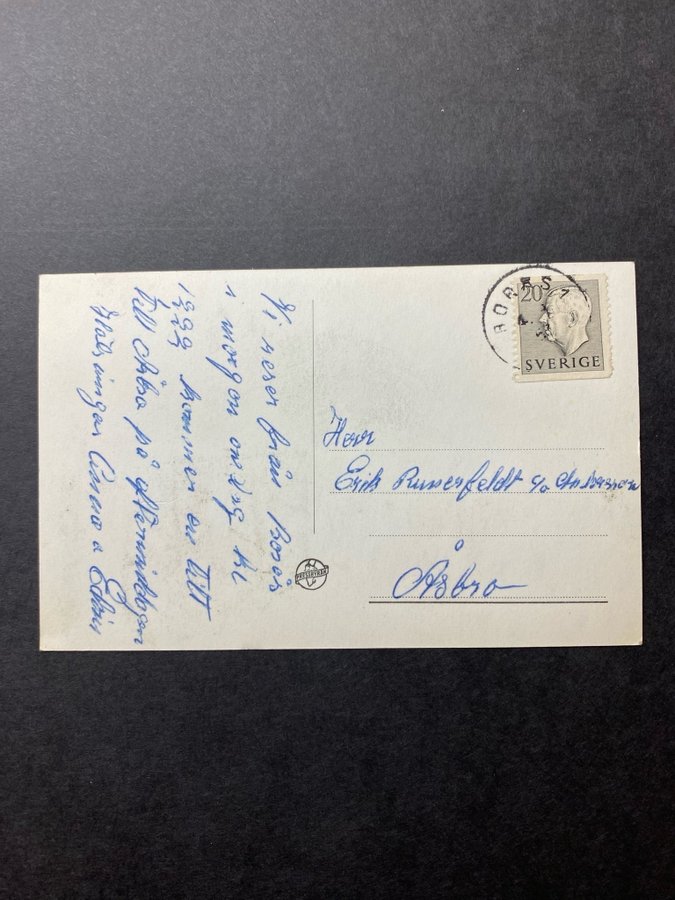 Vi reser från Borås
i morgon onsdag kl
kommer en titt
till Åsbro på eftermiddagen
Hälsningar Anna o Edvin
BORÅS 1
20
SVERIGE
Herr
Erik Runerfeldt c/o Andersson
Åsbro